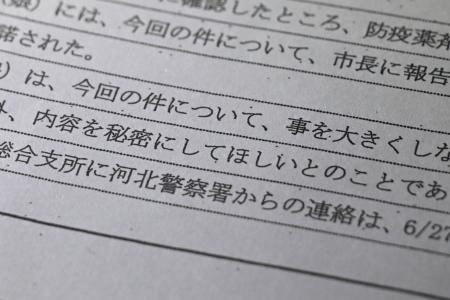 (娘)には、今回の件について、市長に報告
に確認したところ、防疫薬剤
諾された。
)は、今回の件について、事を大きくしな
、内容を秘密にしてほしいとのことであ
総合支所に河北警察署からの連絡は、6/27